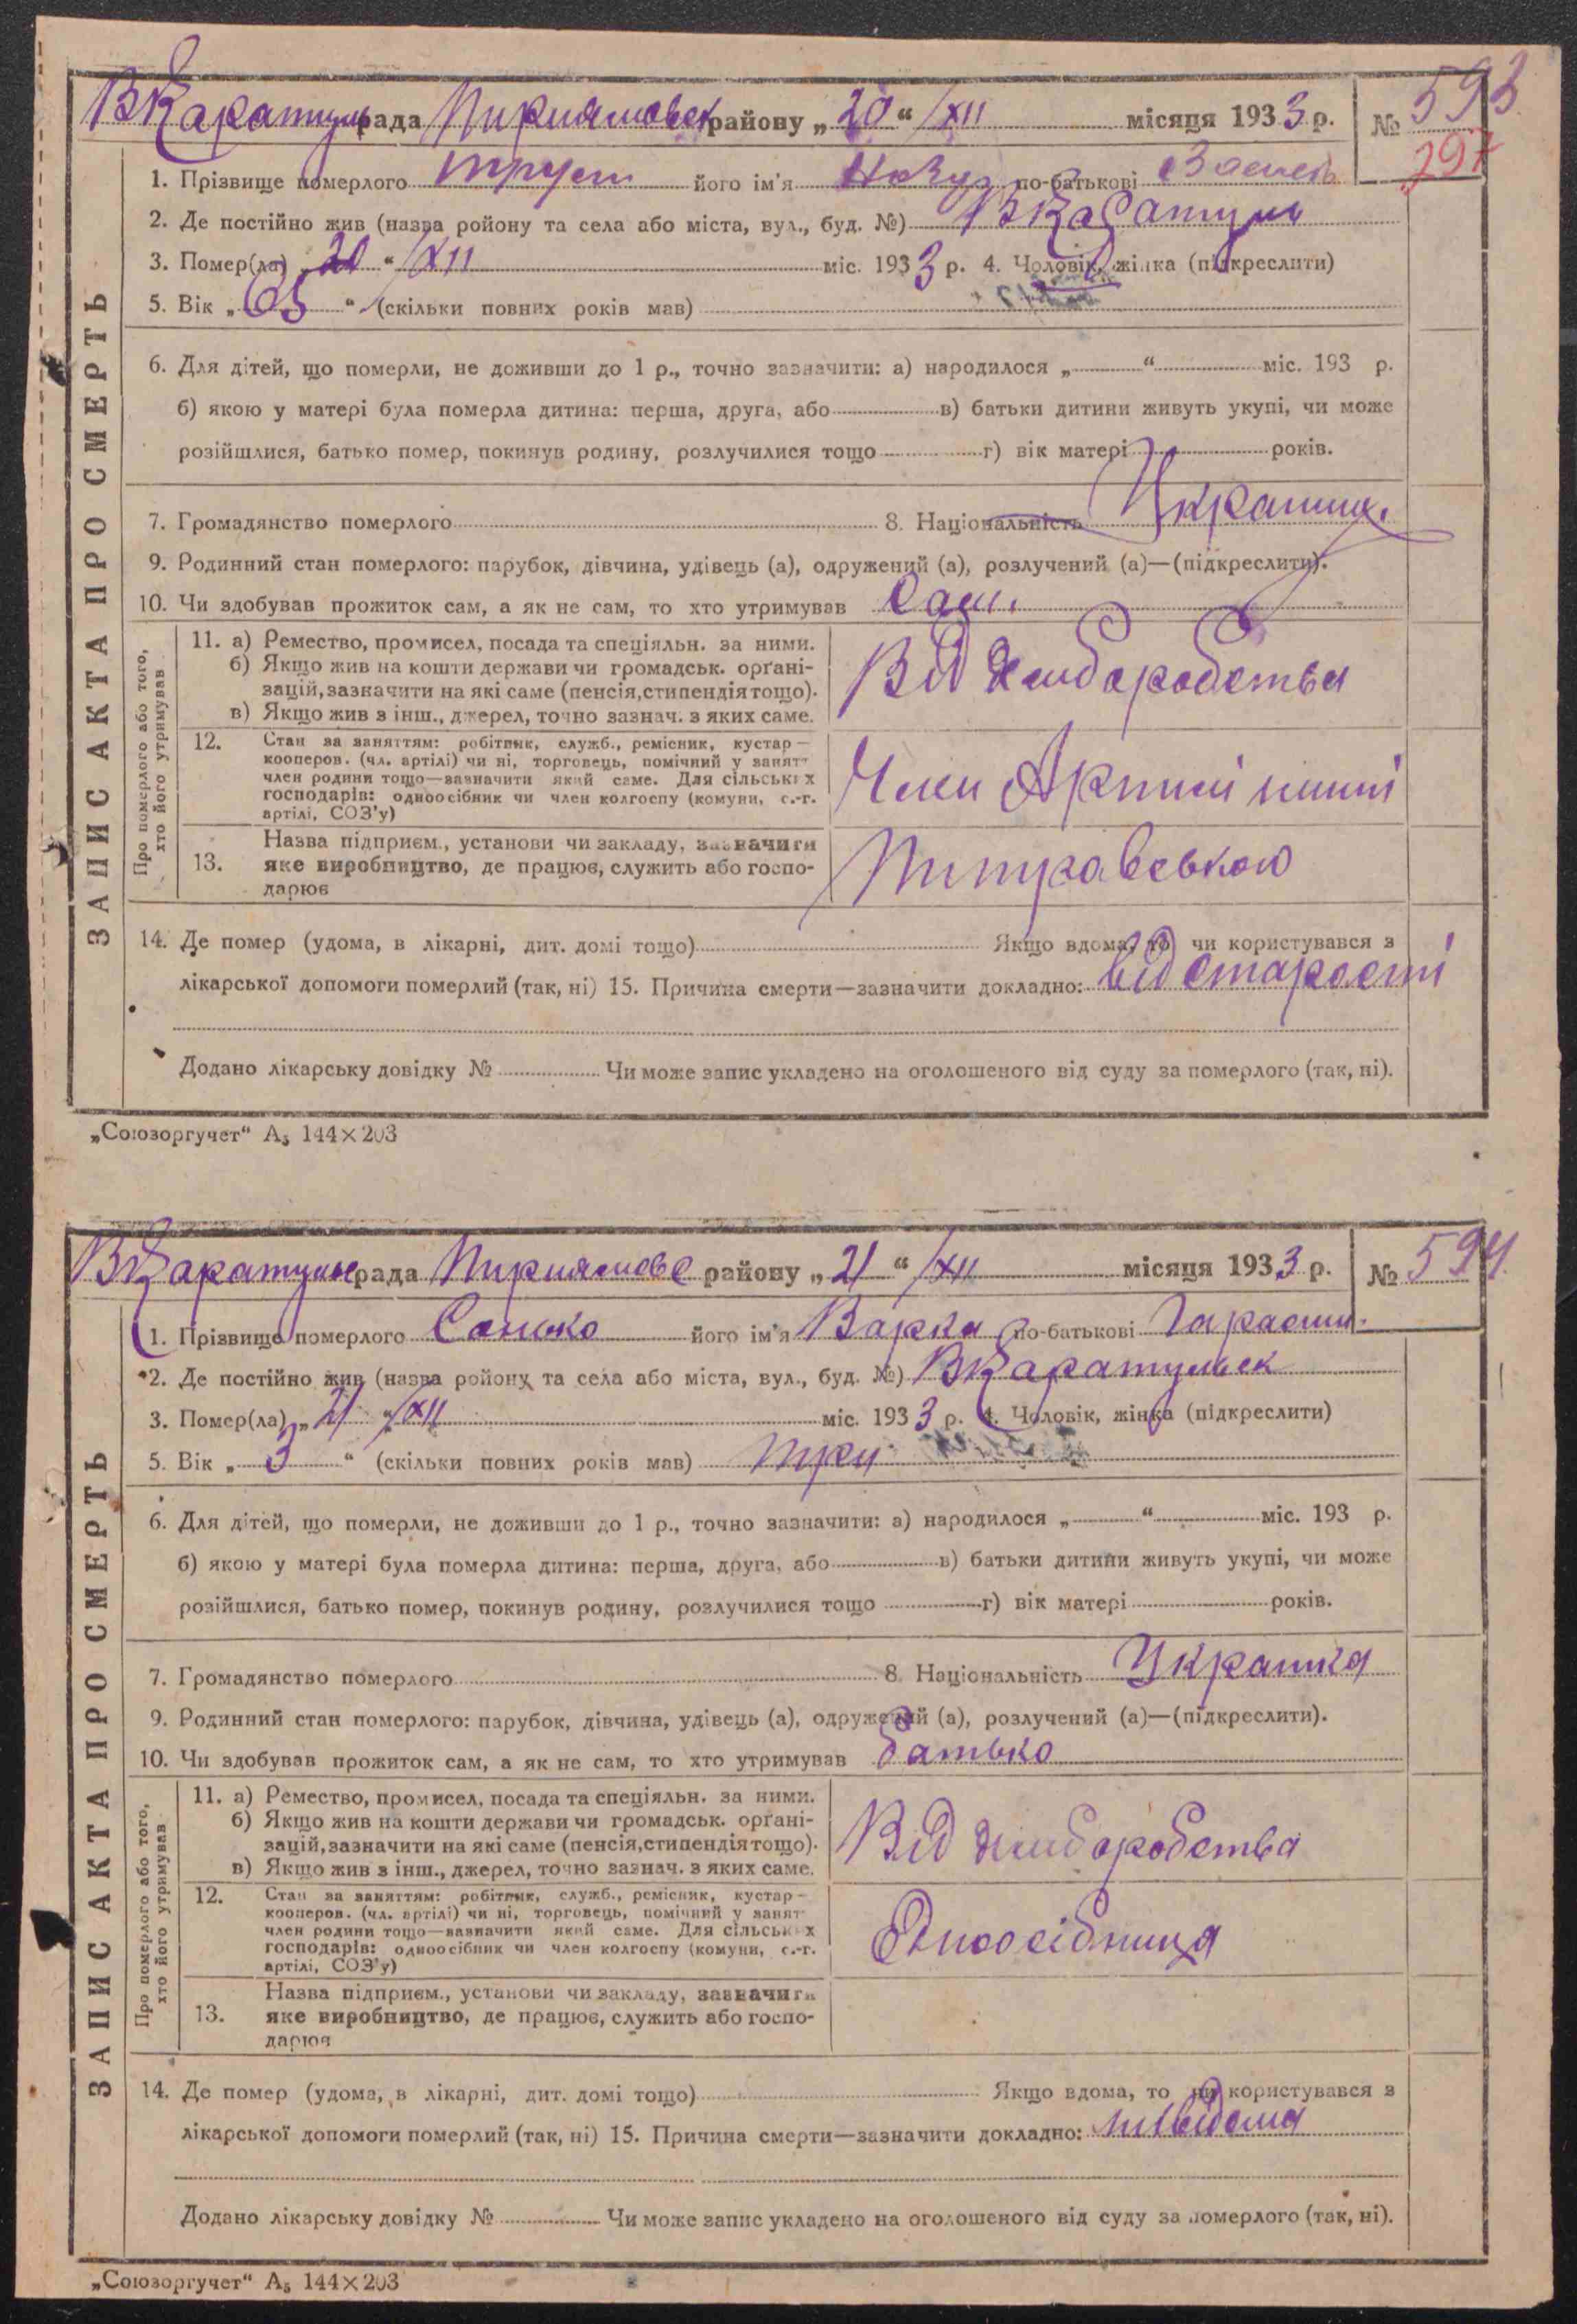 ВКаратул рада Пирятовск району „20“ XII місяця 1933 р. № 593
297
1. Прізвище померлого Труст його ім'я по-батькові
2. Де постійно жив (назва ройону та села або міста, вул., буд. №) ВКаратул
3. Помер(ла) „20“ XII міс. 1933 р. 4. Чоловік, жінка (підкреслити)
5. Вік „65“ (скільки повних років мав)
6. Для дітей, що померли, не доживши до 1 р., точно зазначити: а) народилося „ “ міс. 193 р.
б) якою у матері була померла дитина: перша, друга, або в) батьки дитини живуть укупі, чи може
розійшлися, батько помер, покинув родину, розлучилися тощо г) вік матері років.
7. Громадянство померлого 8. Національність Украинц.
9. Родинний стан померлого: парубок, дівчина, удівець (а), одружений (а), розлучений (а)—(підкреслити).
10. Чи здобував прожиток сам, а як не сам, то хто утримував Сам.
ЗАПИС АКТА ПРО СМЕРТЬ
Про померлого або того, хто його утримував
11. а) Ремество, промисел, посада та спеціяльн. за ними.
б) Якщо жив на кошти держави чи громадськ. орґані-
зацій, зазначити на які саме (пенсія, стипендія тощо).
в) Якщо жив з інш., джерел, точно зазнач. з яких саме.
Від хлиборобства
12. Стан за заняттям: робітник, служб., ремісник, кустар—
кооперов. (чл. артілі) чи ні, торговець, помічний у занятт
член родини тощо—зазначити який саме. Для сільських
господарів: одноосібник чи член колгоспу (комуни, с.-г.
артілі, СОЗ'у)
Член Артилі
13. Назва підприєм., установи чи закладу, зазначити
яке виробництво, де працює, служить або госпо-
дарює
14. Де помер (удома, в лікарні, дит. домі тощо) Якщо вдома, то чи користувався з
лікарської допомоги померлий (так, ні) 15. Причина смерти—зазначити докладно: від старості
Додано лікарську довідку № Чи може запис укладено на оголошеного від суду за померлого (так, ні).
„Союзоргучет“ А₅ 144×203
ВКаратул рада району „21“ XII місяця 1933 р. № 594
1. Прізвище померлого Сашко його ім'я Варка по-батькові Гарасим.
2. Де постійно жив (назва ройону та села або міста, вул., буд. №) ВКаратульск
3. Помер(ла) „21“ XII міс. 1933 р. 4. Чоловік, жінка (підкреслити)
5. Вік „3“ (скільки повних років мав) три
6. Для дітей, що померли, не доживши до 1 р., точно зазначити: а) народилося „ “ міс. 193 р.
б) якою у матері була померла дитина: перша, друга, або в) батьки дитини живуть укупі, чи може
розійшлися, батько помер, покинув родину, розлучилися тощо г) вік матері років.
7. Громадянство померлого 8. Національність Украинка
9. Родинний стан померлого: парубок, дівчина, удівець (а), одружений (а), розлучений (а)—(підкреслити).
10. Чи здобував прожиток сам, а як не сам, то хто утримував батько
ЗАПИС АКТА ПРО СМЕРТЬ
Про померлого або того, хто його утримував
11. а) Ремество, промисел, посада та спеціяльн. за ними.
б) Якщо жив на кошти держави чи громадськ. орґані-
зацій, зазначити на які саме (пенсія, стипендія тощо).
в) Якщо жив з інш., джерел, точно зазнач. з яких саме.
Від хлиборобства
12. Стан за заняттям: робітник, служб., ремісник, кустар—
кооперов. (чл. артілі) чи ні, торговець, помічний у занят
член родини тощо—зазначити який саме. Для сільських
господарів: одноосібник чи член колгоспу (комуни, с.-г.
артілі, СОЗ'у)
Одноосібница
13. Назва підприєм., установи чи закладу, зазначити
яке виробництво, де працює, служить або госпо-
дарює
14. Де помер (удома, в лікарні, дит. домі тощо) Якщо вдома, то чи користувався з
лікарської допомоги померлий (так, ні) 15. Причина смерти—зазначити докладно: нивідома
Додано лікарську довідку № Чи може запис укладено на оголошеного від суду за померлого (так, ні).
„Союзоргучет“ А₅ 144×203